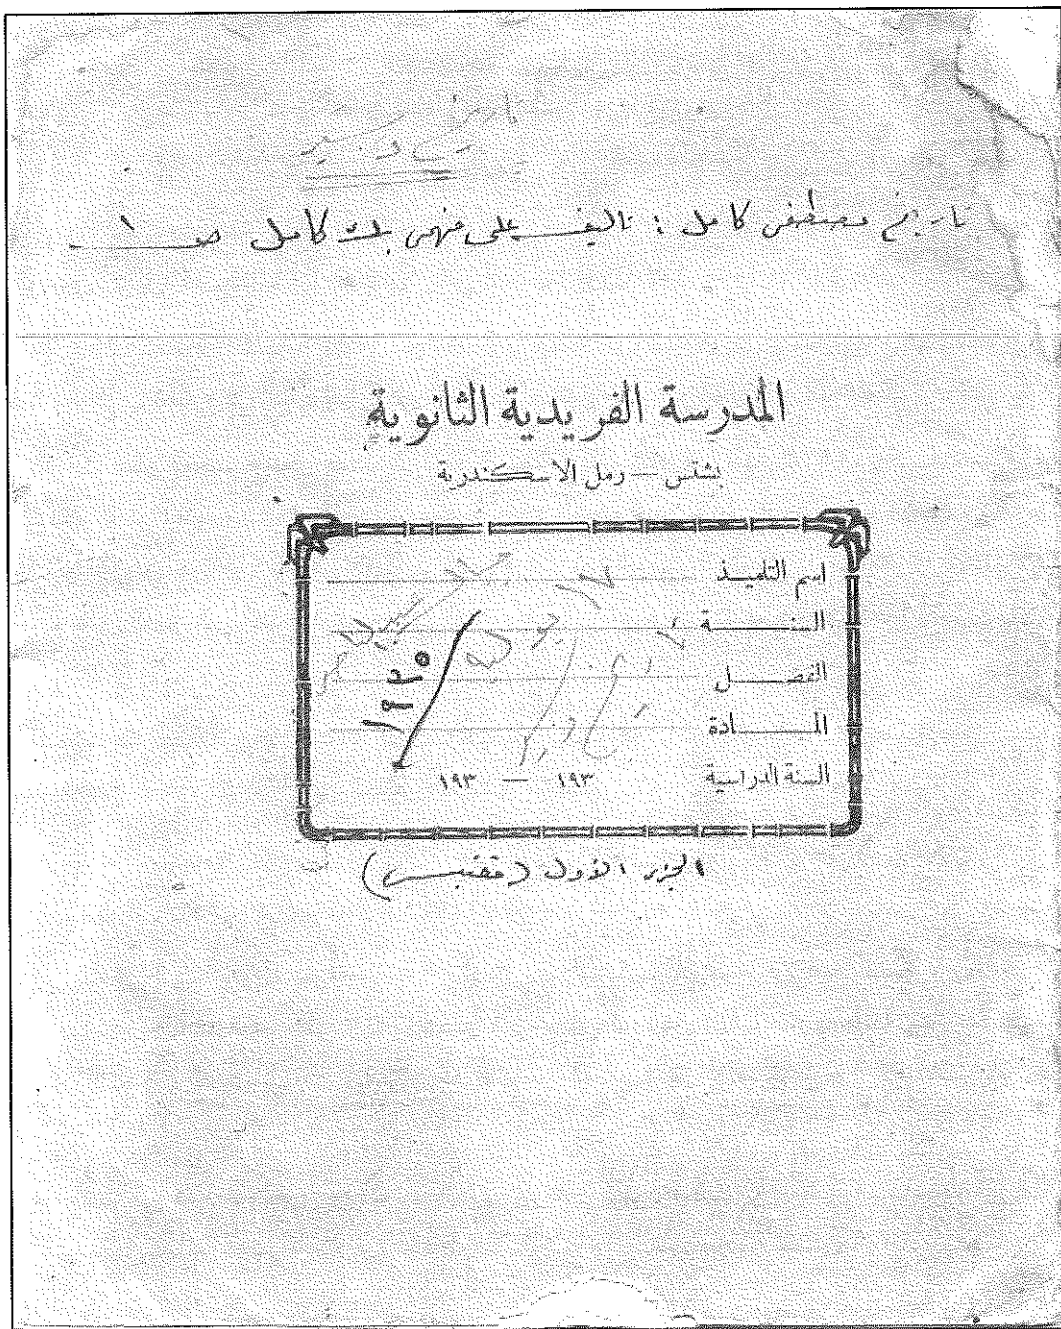 تاريخ وسير
تاريخ مصطفى كامل : تاليف على فهمى بك كامل صـ ١
المدرسة الفريدية الثانوية
بشتس — رمل الاسكندرية
اسم التلميذ
السنة
الفصل
المادة
١٩٣٥
السنة الدراسية ١٩٣ — ١٩٣
الجزء الاول (مقتبس)